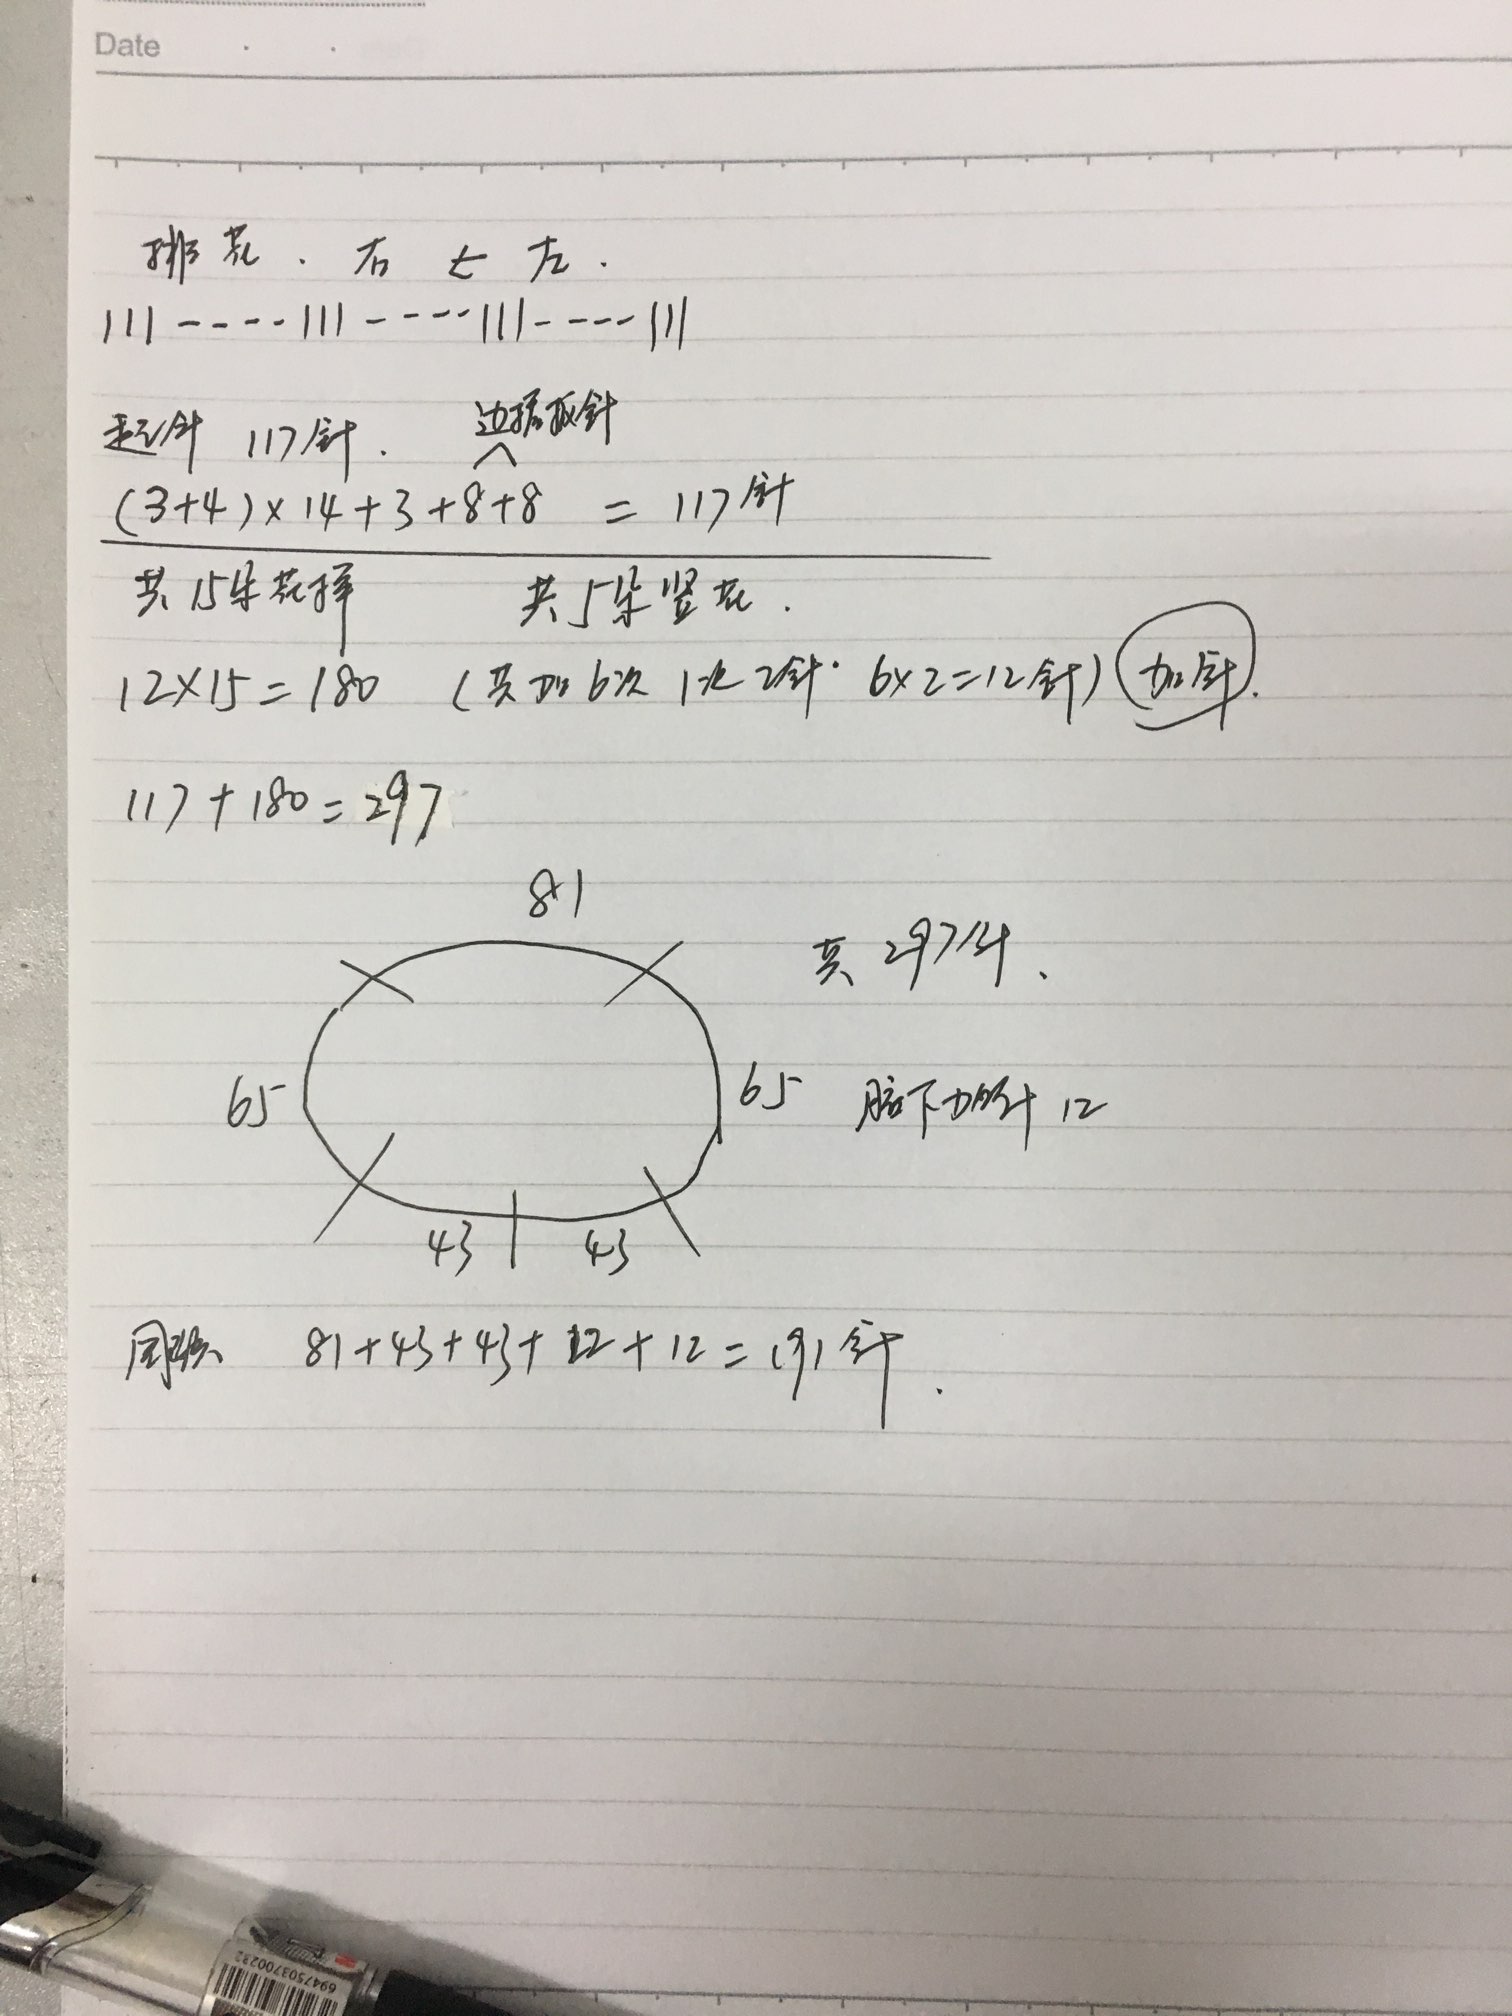 Date
排花. 右 ← 左.
111----111----111----111
起针 117针. 边搓板针
(3+4)×14+3+8+8 = 117针
共15朵花样 共5朵竖花.
12×15=180 (共加6次 1次2针. 6×2=12针) 加针.
117+180=297
81
共297针.
65
65 腋下加针 12
43 43
81+43+43+12+12=191针.
6947503700232